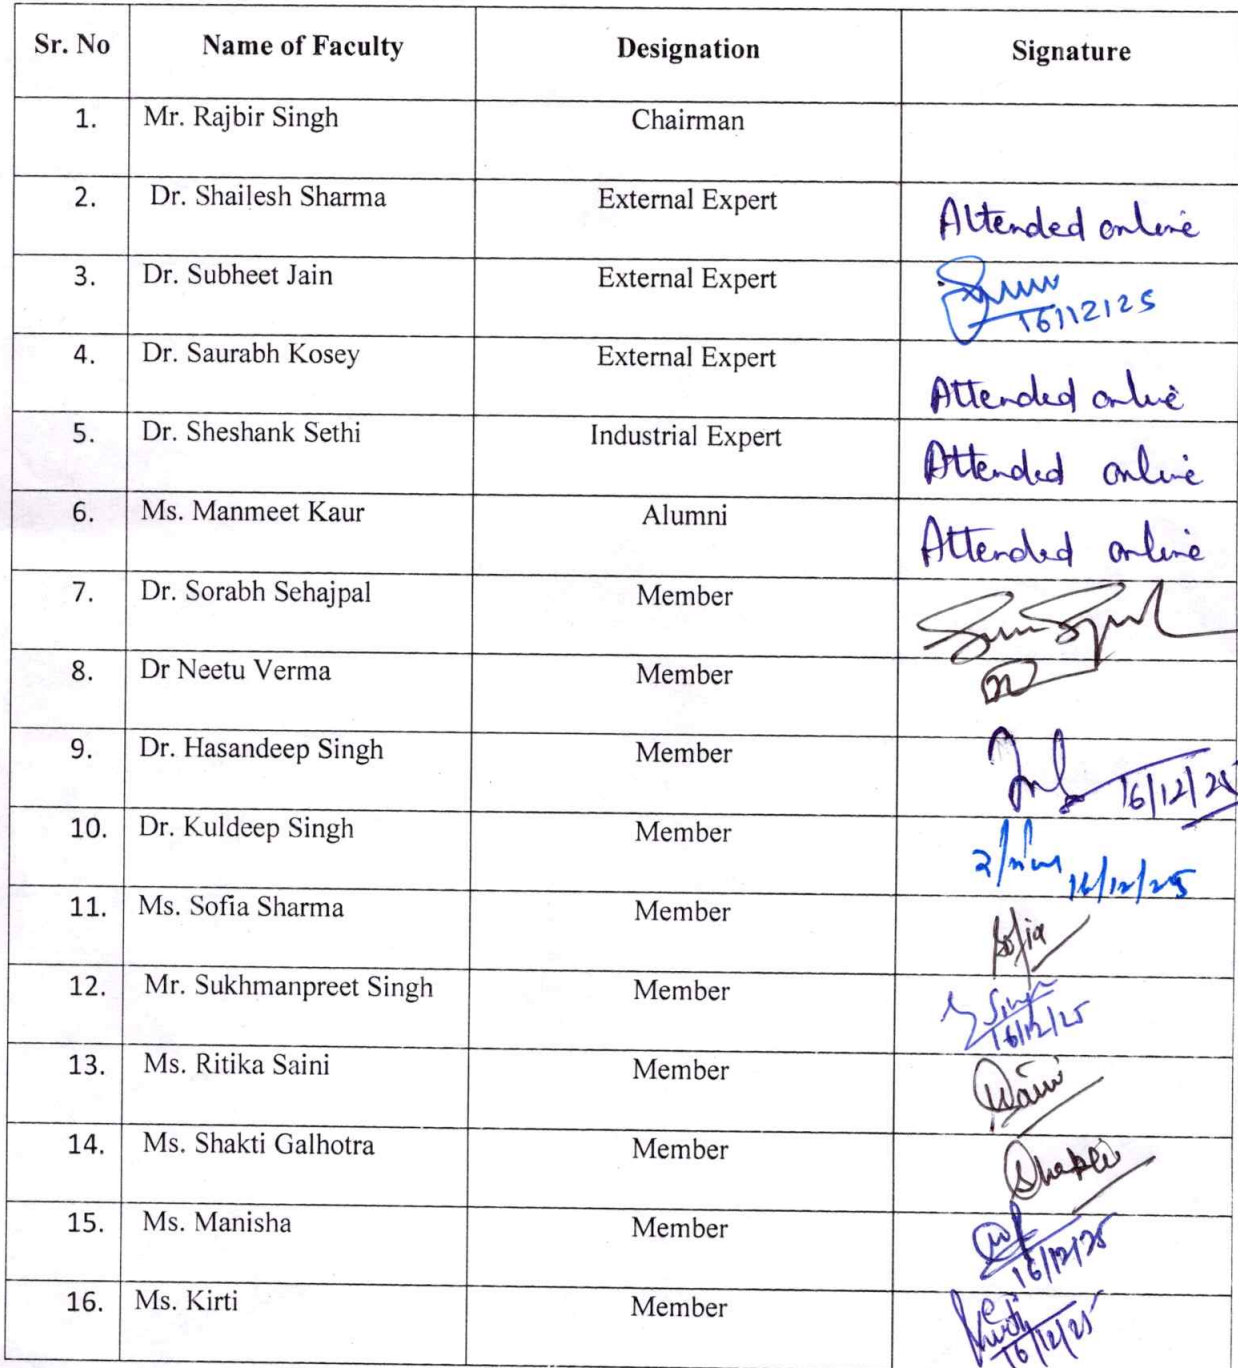 Sr. No Name of Faculty Designation Signature
1. Mr. Rajbir Singh Chairman
2. Dr. Shailesh Sharma External Expert Attended online
3. Dr. Subheet Jain External Expert 16/12/25
4. Dr. Saurabh Kosey External Expert Attended online
5. Dr. Sheshank Sethi Industrial Expert Attended online
6. Ms. Manmeet Kaur Alumni Attended online
7. Dr. Sorabh Sehajpal Member
8. Dr Neetu Verma Member
9. Dr. Hasandeep Singh Member 16/12/25
10. Dr. Kuldeep Singh Member 16/12/25
11. Ms. Sofia Sharma Member Sofia
12. Mr. Sukhmanpreet Singh Member Singh 16/12/25
13. Ms. Ritika Saini Member Saini
14. Ms. Shakti Galhotra Member Shakti
15. Ms. Manisha Member 16/12/25
16. Ms. Kirti Member Kirti 16/12/25